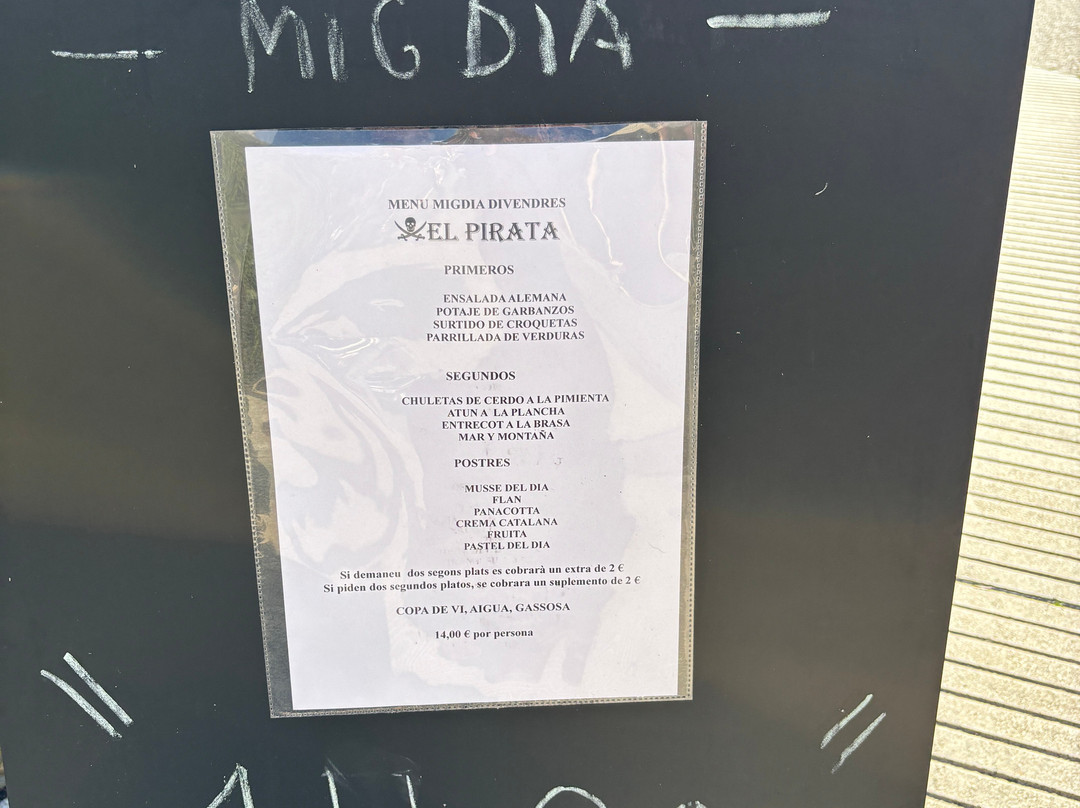 — MIGDIA —
MENU MIGDIA DIVENDRES
EL PIRATA
PRIMEROS
ENSALADA ALEMANA
POTAJE DE GARBANZOS
SURTIDO DE CROQUETAS
PARRILLADA DE VERDURAS
SEGUNDOS
CHULETAS DE CERDO A LA PIMIENTA
ATUN A LA PLANCHA
ENTRECOT A LA BRASA
MAR Y MONTAÑA
POSTRES
MUSSE DEL DIA
FLAN
PANACOTTA
CREMA CATALANA
FRUITA
PASTEL DEL DIA
Si demaneu dos segons plats es cobrarà un extra de 2 €
Si piden dos segundos platos, se cobrara un suplemento de 2 €
COPA DE VI, AIGUA, GASSOSA
14,00 € por persona